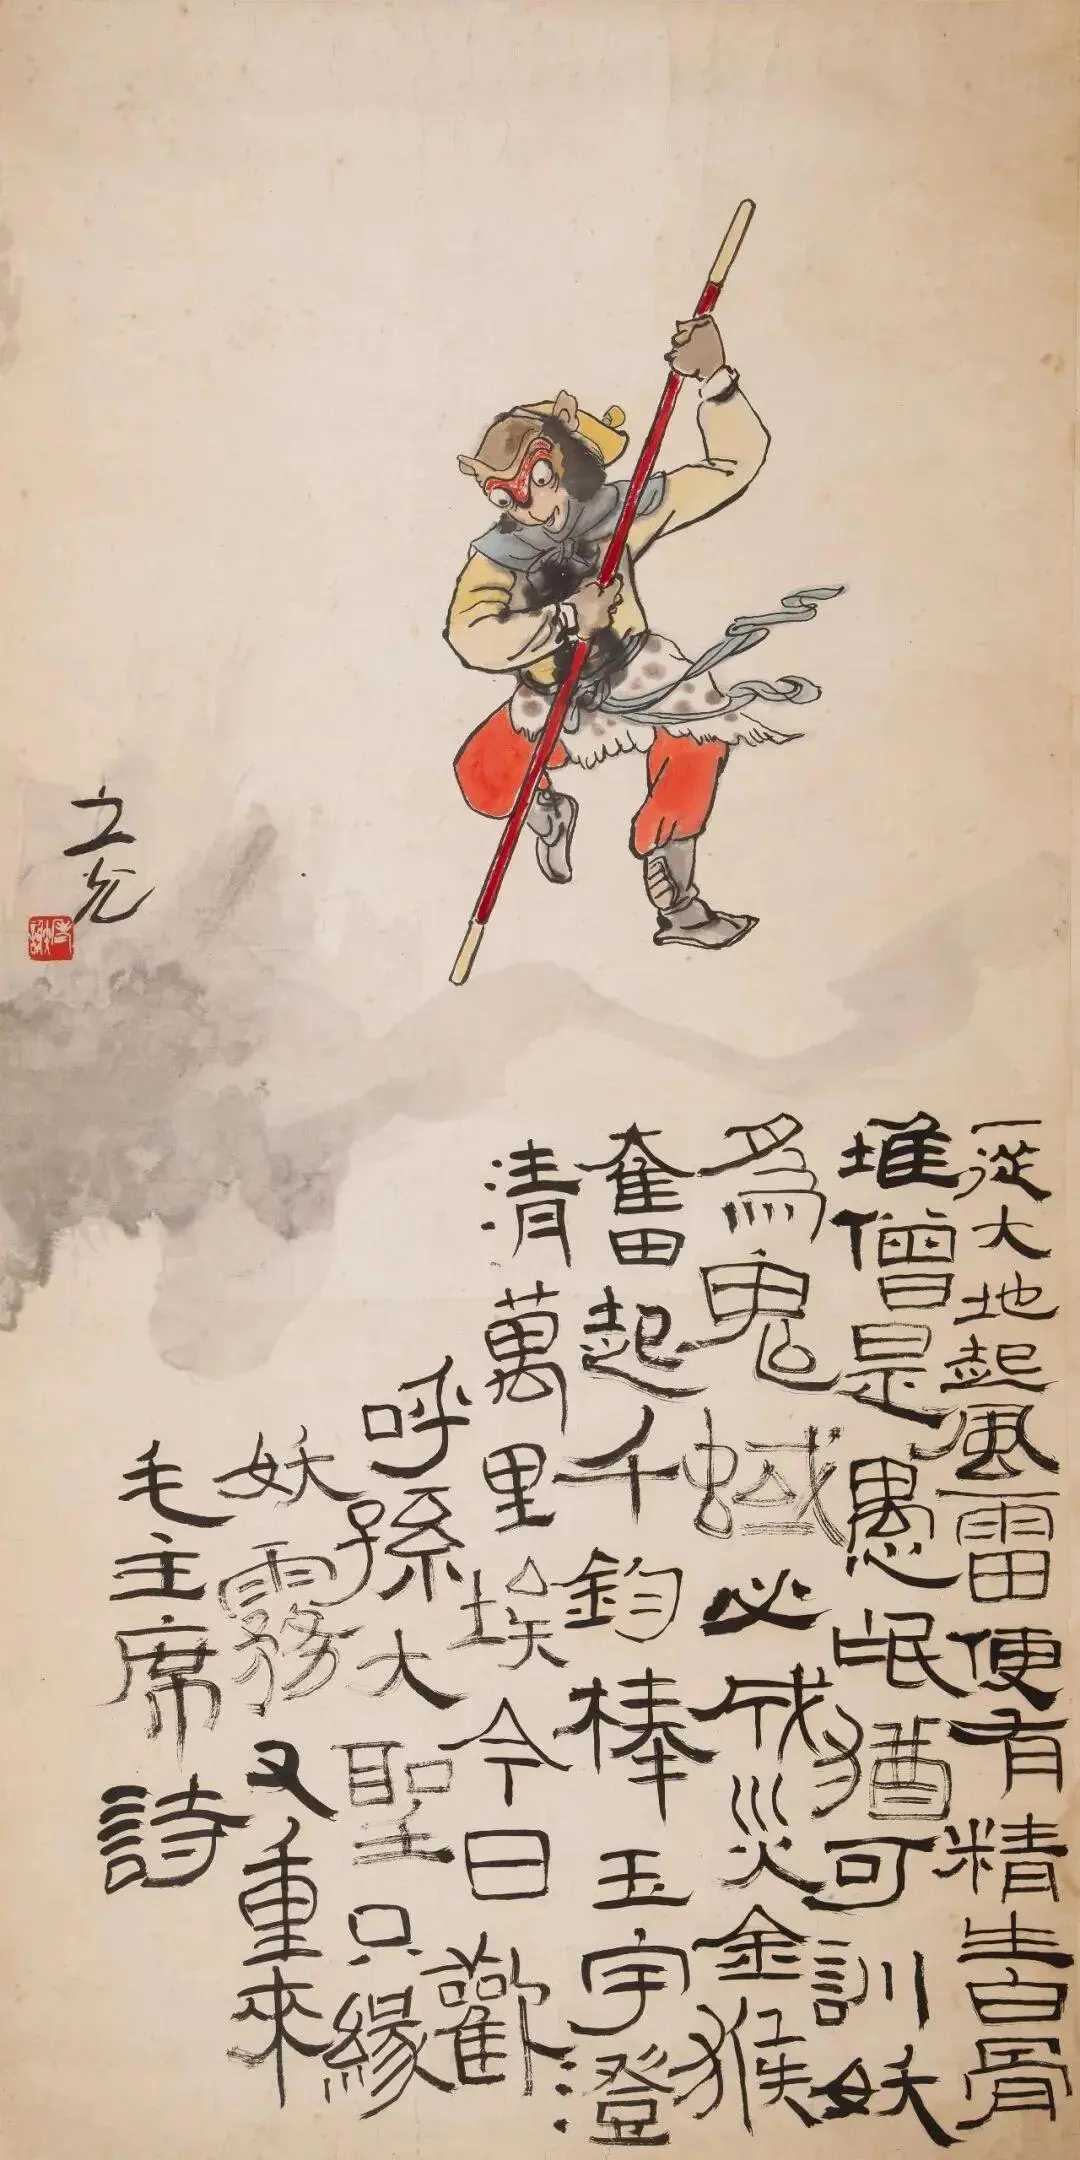 一從大地起風雷便有精生白骨
堆僧是愚氓猶可訓妖
為鬼蜮必成災金猴
奮起千鈞棒玉宇澄
清萬里埃今日歡
呼孫大聖只緣
妖霧又重來
毛主席詩